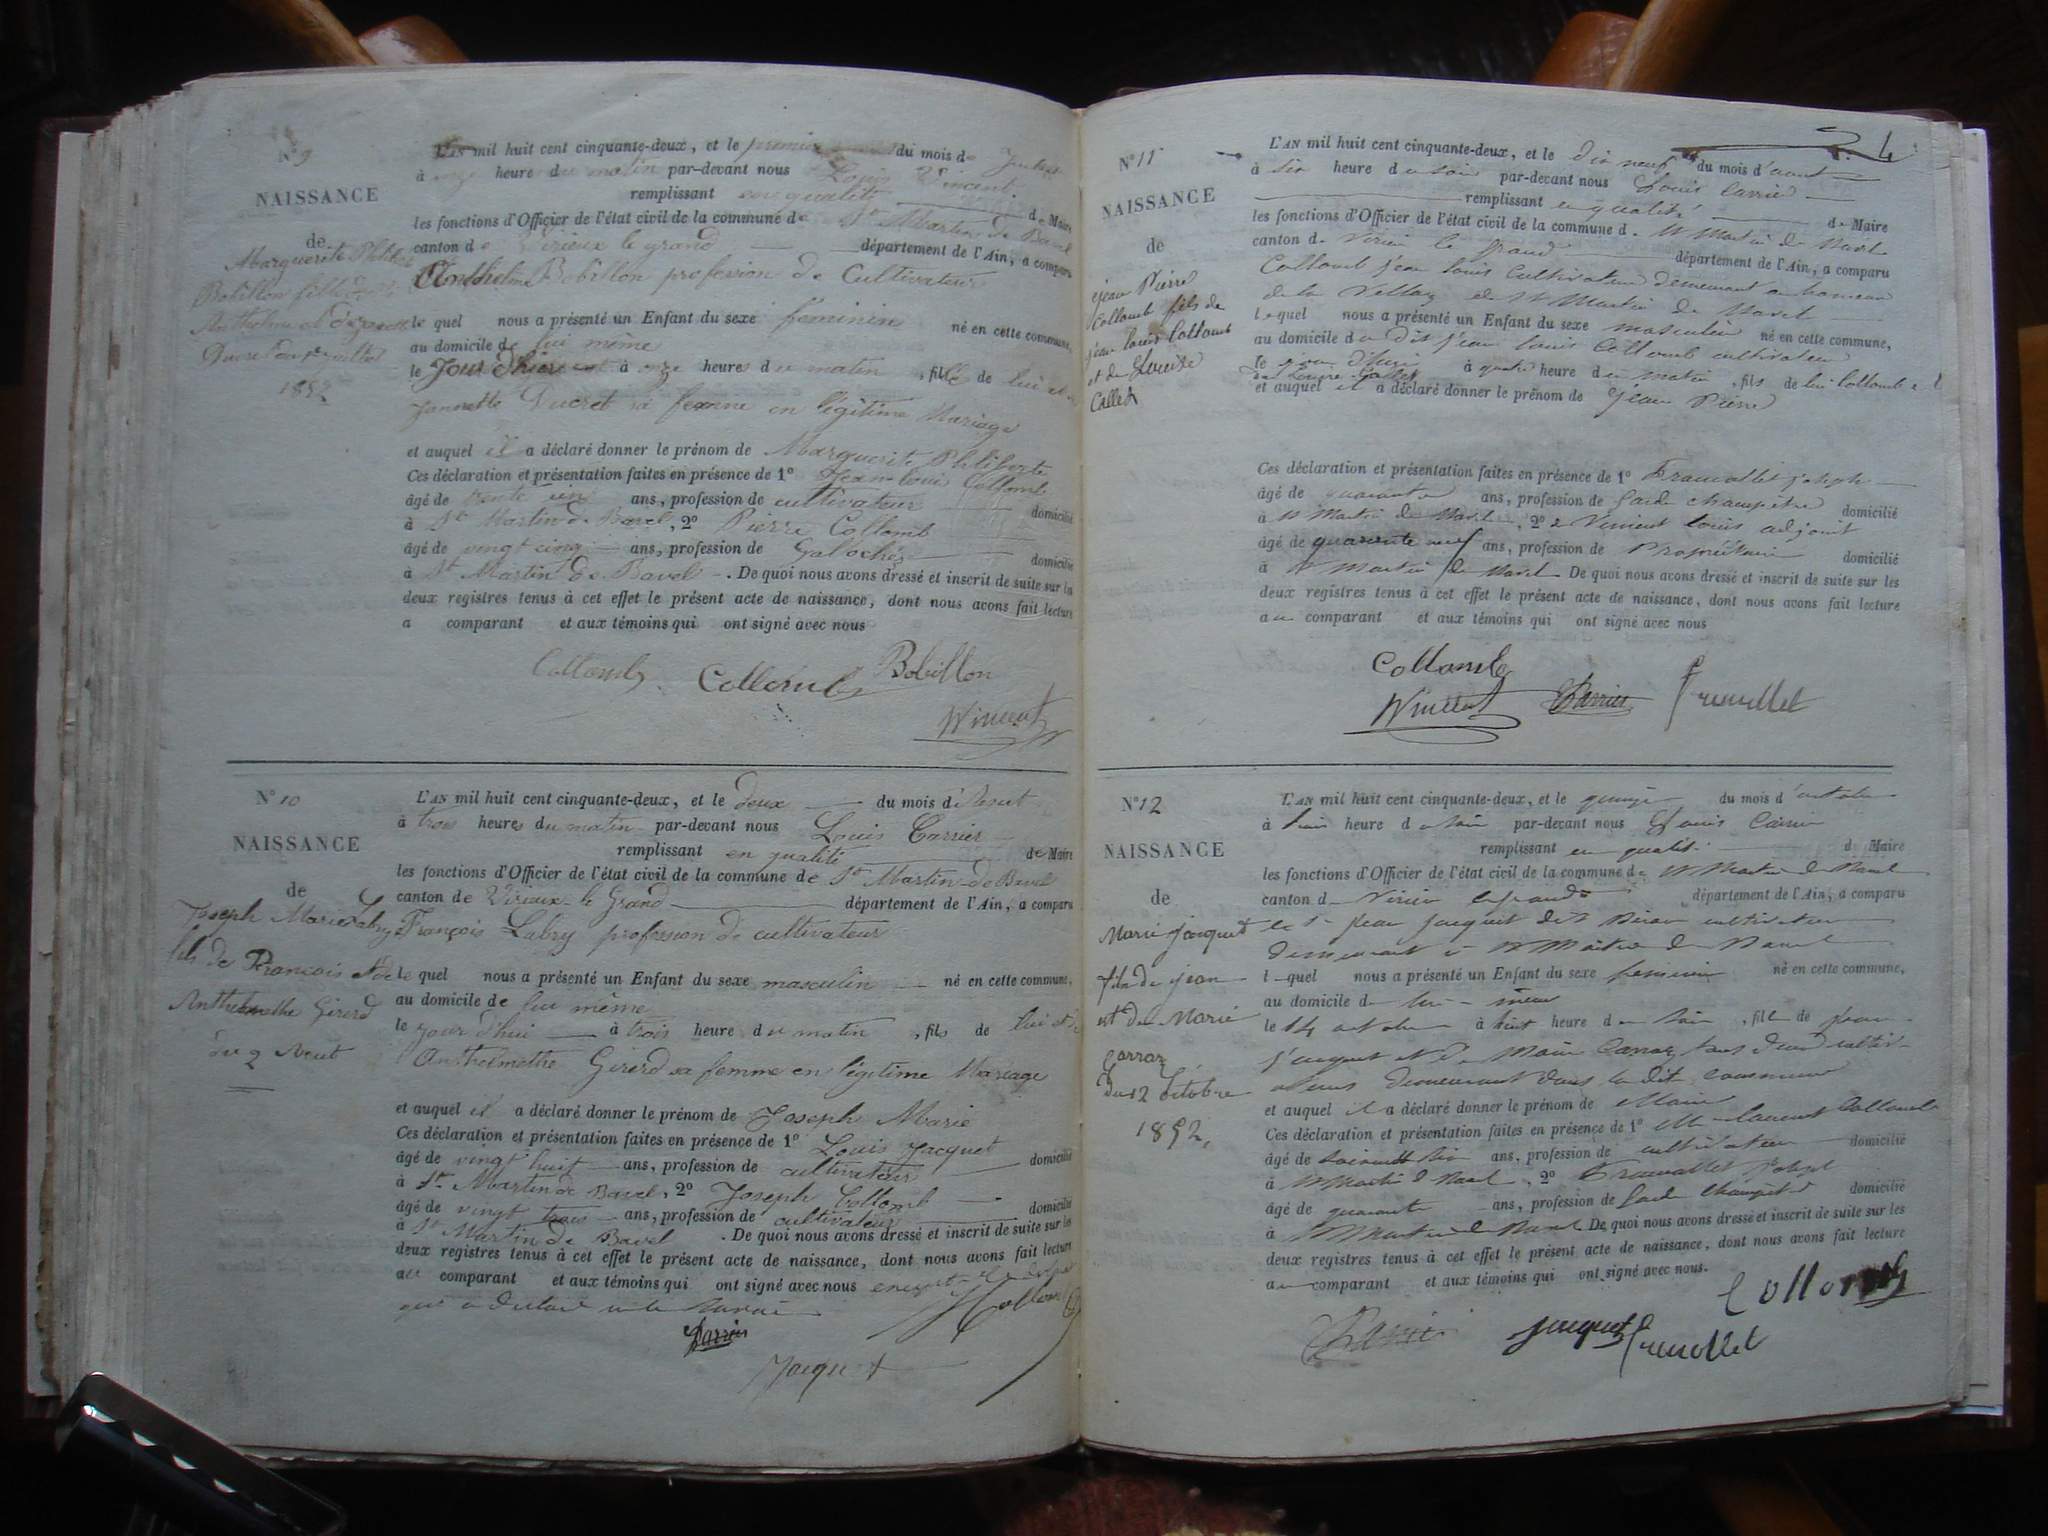 N° 9
NAISSANCE
de
Marguerite
Bobillon fille
Anthelme et
Ducret du 1er juillet
1852
L'AN mil huit cent cinquante-deux, et le premier du mois de
à onze heure du matin par-devant nous Louis Vincent
remplissant en qualité de Maire
les fonctions d'Officier de l'état civil de la commune de St Martin de Bavel
canton de Virieux le grand département de l'Ain, a comparu
Anthelme Bobillon profession de Cultivateur
le quel nous a présenté un Enfant du sexe feminin né en cette commune,
au domicile de lui même
le Jour d'hier à onze heures du matin, fille de lui et
Jannette Ducret sa femme en légitime Mariage
et auquel il a déclaré donner le prénom de Marguerite Philiberte
Ces déclaration et présentation faites en présence de 1° Jean-Louis Collomb
âgé de trente un ans, profession de cultivateur domicilié
à St Martin de Bavel, 2° Pierre Collomb
âgé de vingt cinq ans, profession de Galochier domicilié
à St Martin de Bavel. De quoi nous avons dressé et inscrit de suite sur les
deux registres tenus à cet effet le présent acte de naissance, dont nous avons fait lecture
a comparant et aux témoins qui ont signé avec nous
Collomb Collomb Bobillon
Vincent
N° 10
NAISSANCE
de
Joseph Marie Labry
fils de François et de
Anthelmette Girerd
du 2 Aout
L'AN mil huit cent cinquante-deux, et le deux du mois d'Aout
à trois heures du matin par-devant nous Louis Carrier
remplissant en qualité de Maire
les fonctions d'Officier de l'état civil de la commune de St Martin de Bavel
canton de Virieux-le Grand département de l'Ain, a comparu
François Labry profession de cultivateur
le quel nous a présenté un Enfant du sexe masculin né en cette commune,
au domicile de lui même
le jour d'hui à trois heure du matin, fils de lui et de
Anthelmette Girerd sa femme en légitime Mariage
et auquel il a déclaré donner le prénom de Joseph Marie
Ces déclaration et présentation faites en présence de 1° Louis Jacquet
âgé de vingt huit ans, profession de cultivateur domicilié
à St Martin de Bavel, 2° Joseph Collomb
âgé de vingt trois ans, profession de cultivateur domicilié
à St Martin de Bavel. De quoi nous avons dressé et inscrit de suite sur les
deux registres tenus à cet effet le présent acte de naissance, dont nous avons fait lecture
au comparant et aux témoins qui ont signé avec nous
qui a déclaré
Collomb
Carrier
Jacquet
4
N° 11
NAISSANCE
de
jean Pierre
Collomb fils de
jean louis Collomb
et de Louise
Callet
L'AN mil huit cent cinquante-deux, et le dix neuf du mois d'aout
à six heure du soir par-devant nous Louis Carrier
remplissant en qualité de Maire
les fonctions d'Officier de l'état civil de la commune de St Martin de Bavel
canton de Virieu le grand département de l'Ain, a comparu
Collomb jean louis Cultivateur demeurant au hameau
de la Vellaz de St Martin de Bavel
lequel nous a présenté un Enfant du sexe masculin né en cette commune,
au domicile du dit jean louis Collomb cultivateur
le jour d'hui à quatre heure du matin, fils de lui Collomb et
de Louise Callet
et auquel il a déclaré donner le prénom de jean Pierre
Ces déclaration et présentation faites en présence de 1° joseph
âgé de quarante ans, profession de Garde champêtre domicilié
à St Martin de Bavel, 2° Vincent louis adjoint
âgé de quarante neuf ans, profession de Propriétaire domicilié
à St Martin de Bavel De quoi nous avons dressé et inscrit de suite sur les
deux registres tenus à cet effet le présent acte de naissance, dont nous avons fait lecture
au comparant et aux témoins qui ont signé avec nous
Collomb
Vincent Carrier
N° 12
NAISSANCE
de
Marie jacquet
fille de jean
et de Marie
Carraz
Du 12 Octobre
1852.
L'AN mil huit cent cinquante-deux, et le quinze du mois d'octobre
à trois heure du soir par-devant nous Louis Carrier
remplissant en qualité de Maire
les fonctions d'Officier de l'état civil de la commune de St Martin de Bavel
canton de Virieu le grand département de l'Ain, a comparu
jean jacquet cultivateur
demeurant à St Martin de Bavel
lequel nous a présenté un Enfant du sexe feminin né en cette commune,
au domicile de lui-même
le 14 octobre à huit heure du soir, fille de jean
jacquet et de Marie Carraz tous deux
demeurant dans la dite commune
et auquel il a déclaré donner le prénom de Marie
Ces déclaration et présentation faites en présence de 1° laurent Collomb
âgé de soixante six ans, profession de cultivateur domicilié
à St Martin de Bavel, 2° joseph
âgé de quarante ans, profession de Garde Champêtre domicilié
à St Martin de Bavel De quoi nous avons dressé et inscrit de suite sur les
deux registres tenus à cet effet le présent acte de naissance, dont nous avons fait lecture
au comparant et aux témoins qui ont signé avec nous.
Collomb
Carrier jacquet